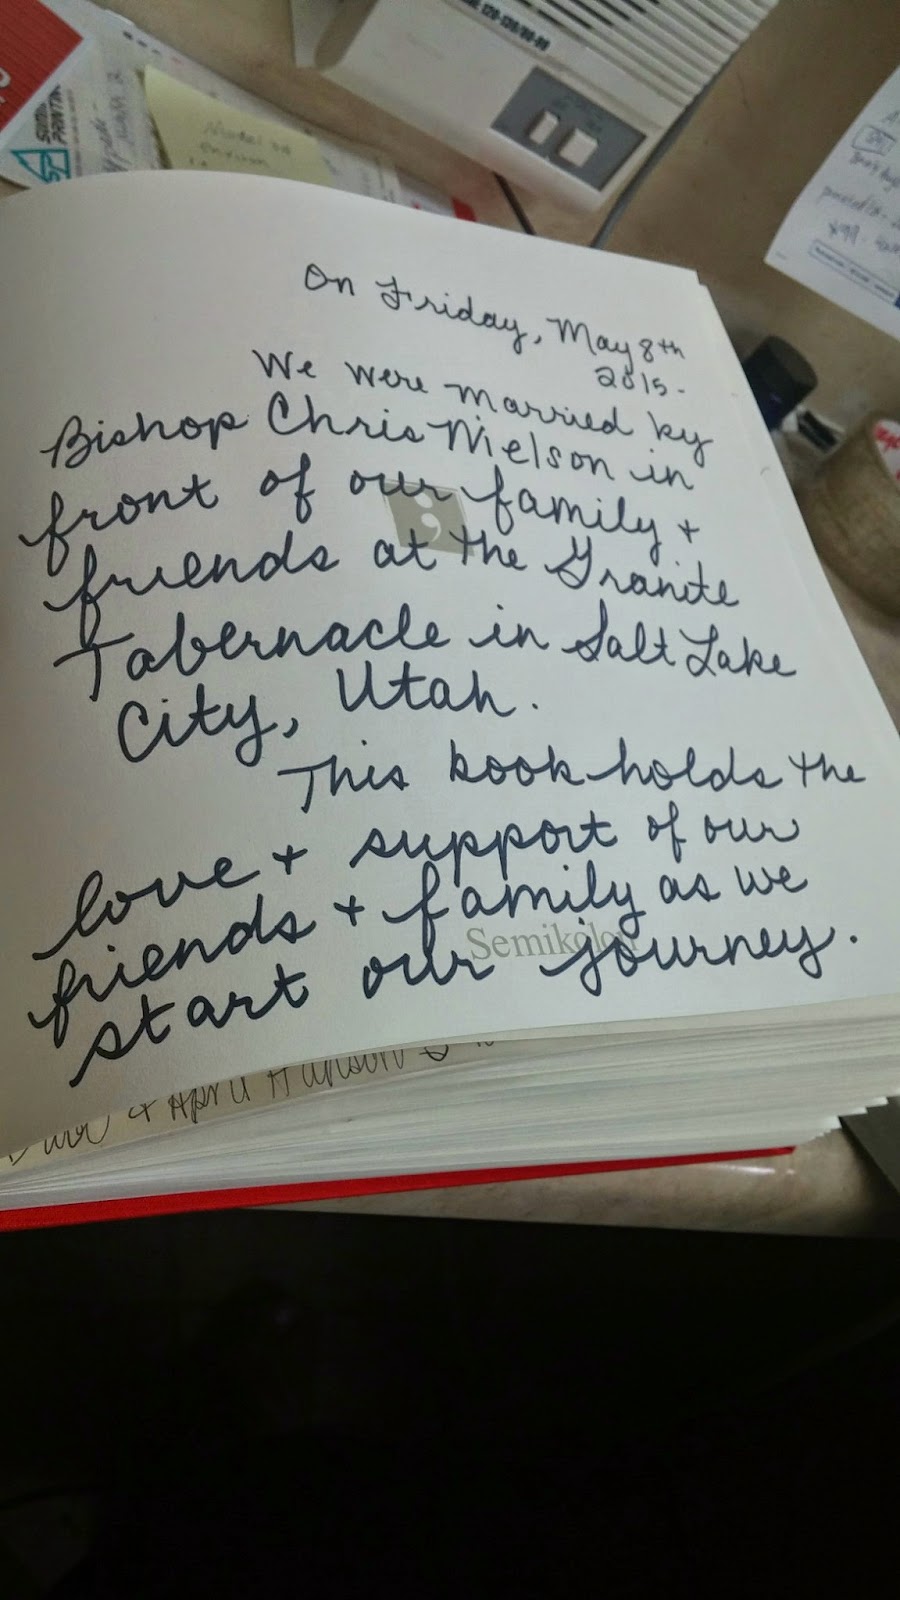 120-125/60-99
On Friday, May 8th
2015.
We were married by
Bishop Chris Nielson in
front of our family +
friends at the Granite
Tabernacle in Salt Lake
City, Utah.
This book holds the
love + support of our
friends + family as we
start our journey.
Semikolon
+ April Hanson